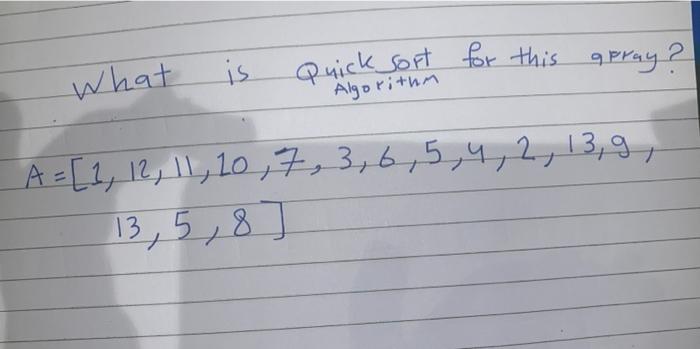 What is Quick sort for this array?
Algorithm
A=[1, 12, 11, 10, 7, 3, 6, 5, 4, 2, 13, 9,
13, 5, 8]